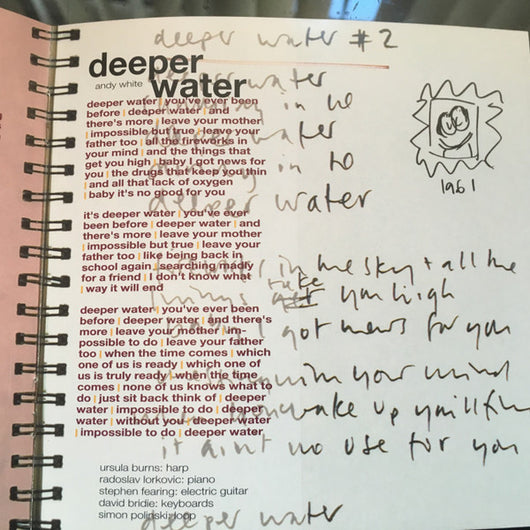 deeper water #2
deeper
andy white water
deeper water | you've ever been
before | deeper water | and
there's more | leave your mother
| impossible but true | leave your
father too | all the fireworks in
your mind | and the things that
get you high | baby I got news for
you | the drugs that keep you thin
| and all that lack of oxygen
| baby it's no good for you
it's deeper water | you've ever
been before | deeper water | and
there's more | leave your mother
| impossible but true | leave your
father too | like being back in
school again | searching madly
for a friend | I don't know what
| way it will end
deeper water | you've ever been
before | deeper water | and there's
more | leave your mother | im-
possible to do | leave your father
too | when the time comes | which
one of us is ready | which one of
us is truly ready | when the time
comes | none of us knows what to
do | just sit back think of | deeper
water | impossible to do | deeper
water | without you | deeper water
| impossible to do | deeper water
ursula burns: harp
radoslav lorkovic: piano
stephen fearing: electric guitar
david bridie: keyboards
simon polinski: loop
water
in to
water
in to
deeper water
UK
1961
in the sky + all the
things take you high
I got news for you
your mind
wake up you'll
it aint no use for you
deeper water